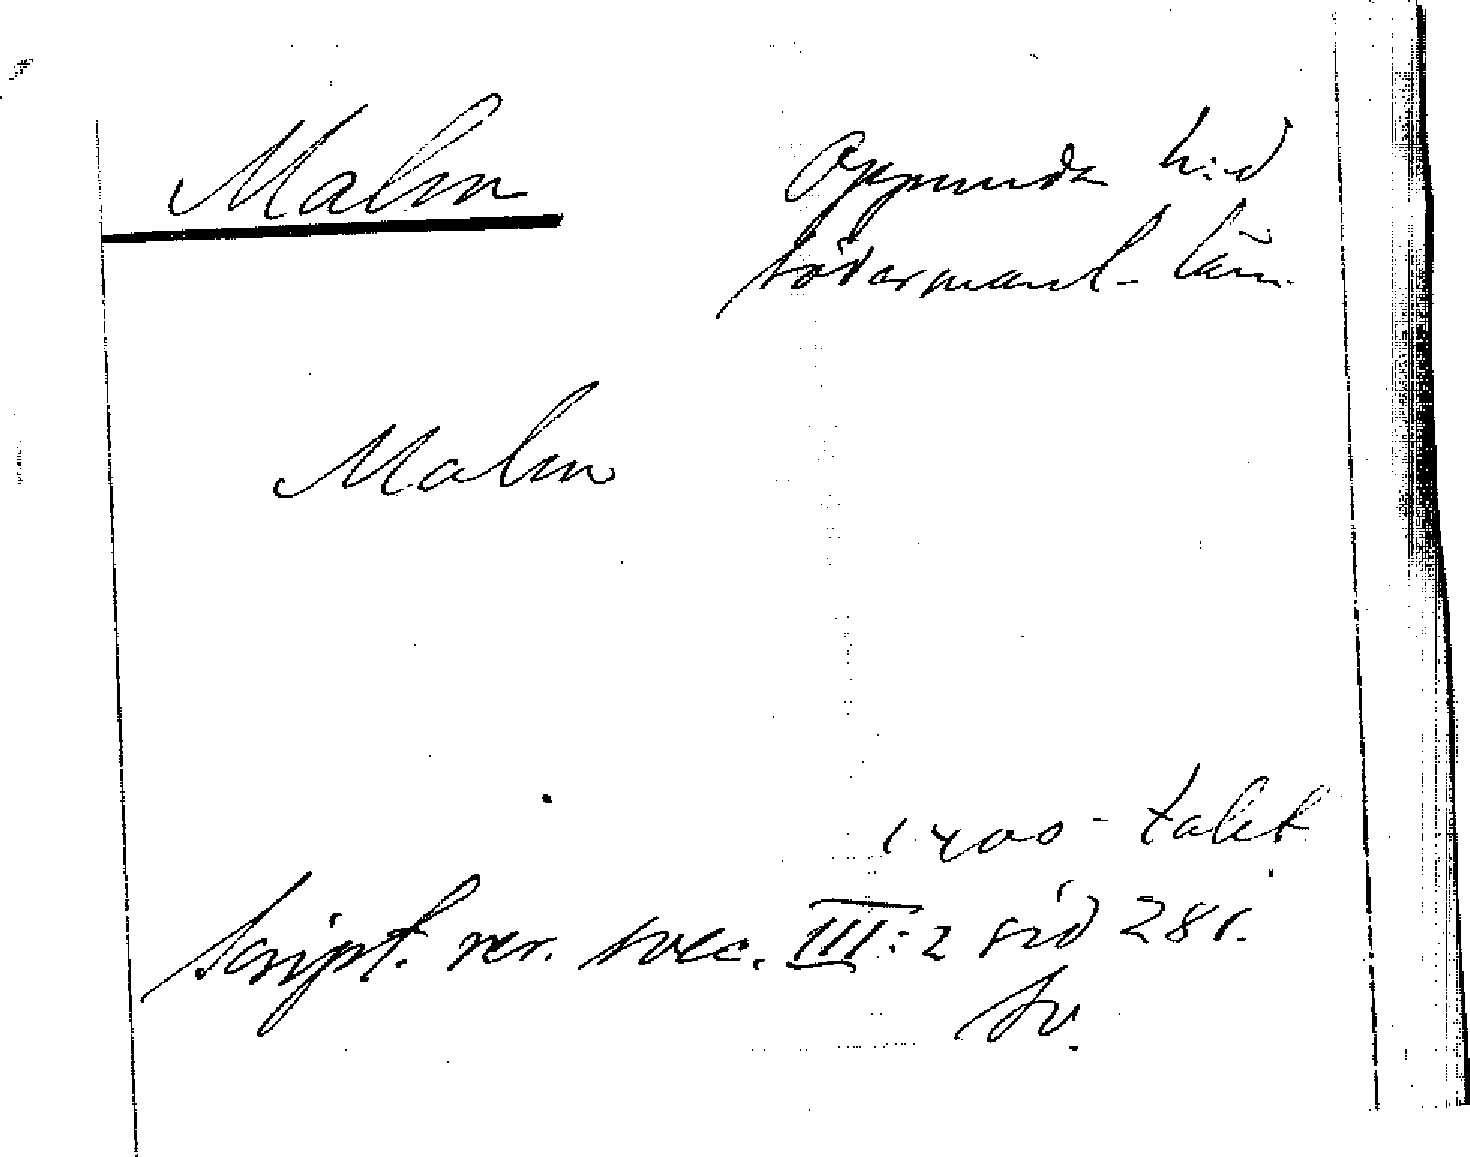 Malm
Oppunda h:d
Södermanl. län.
Malm
1400-talet
Script. rer. svec. III:2 sid 281.
Sv.